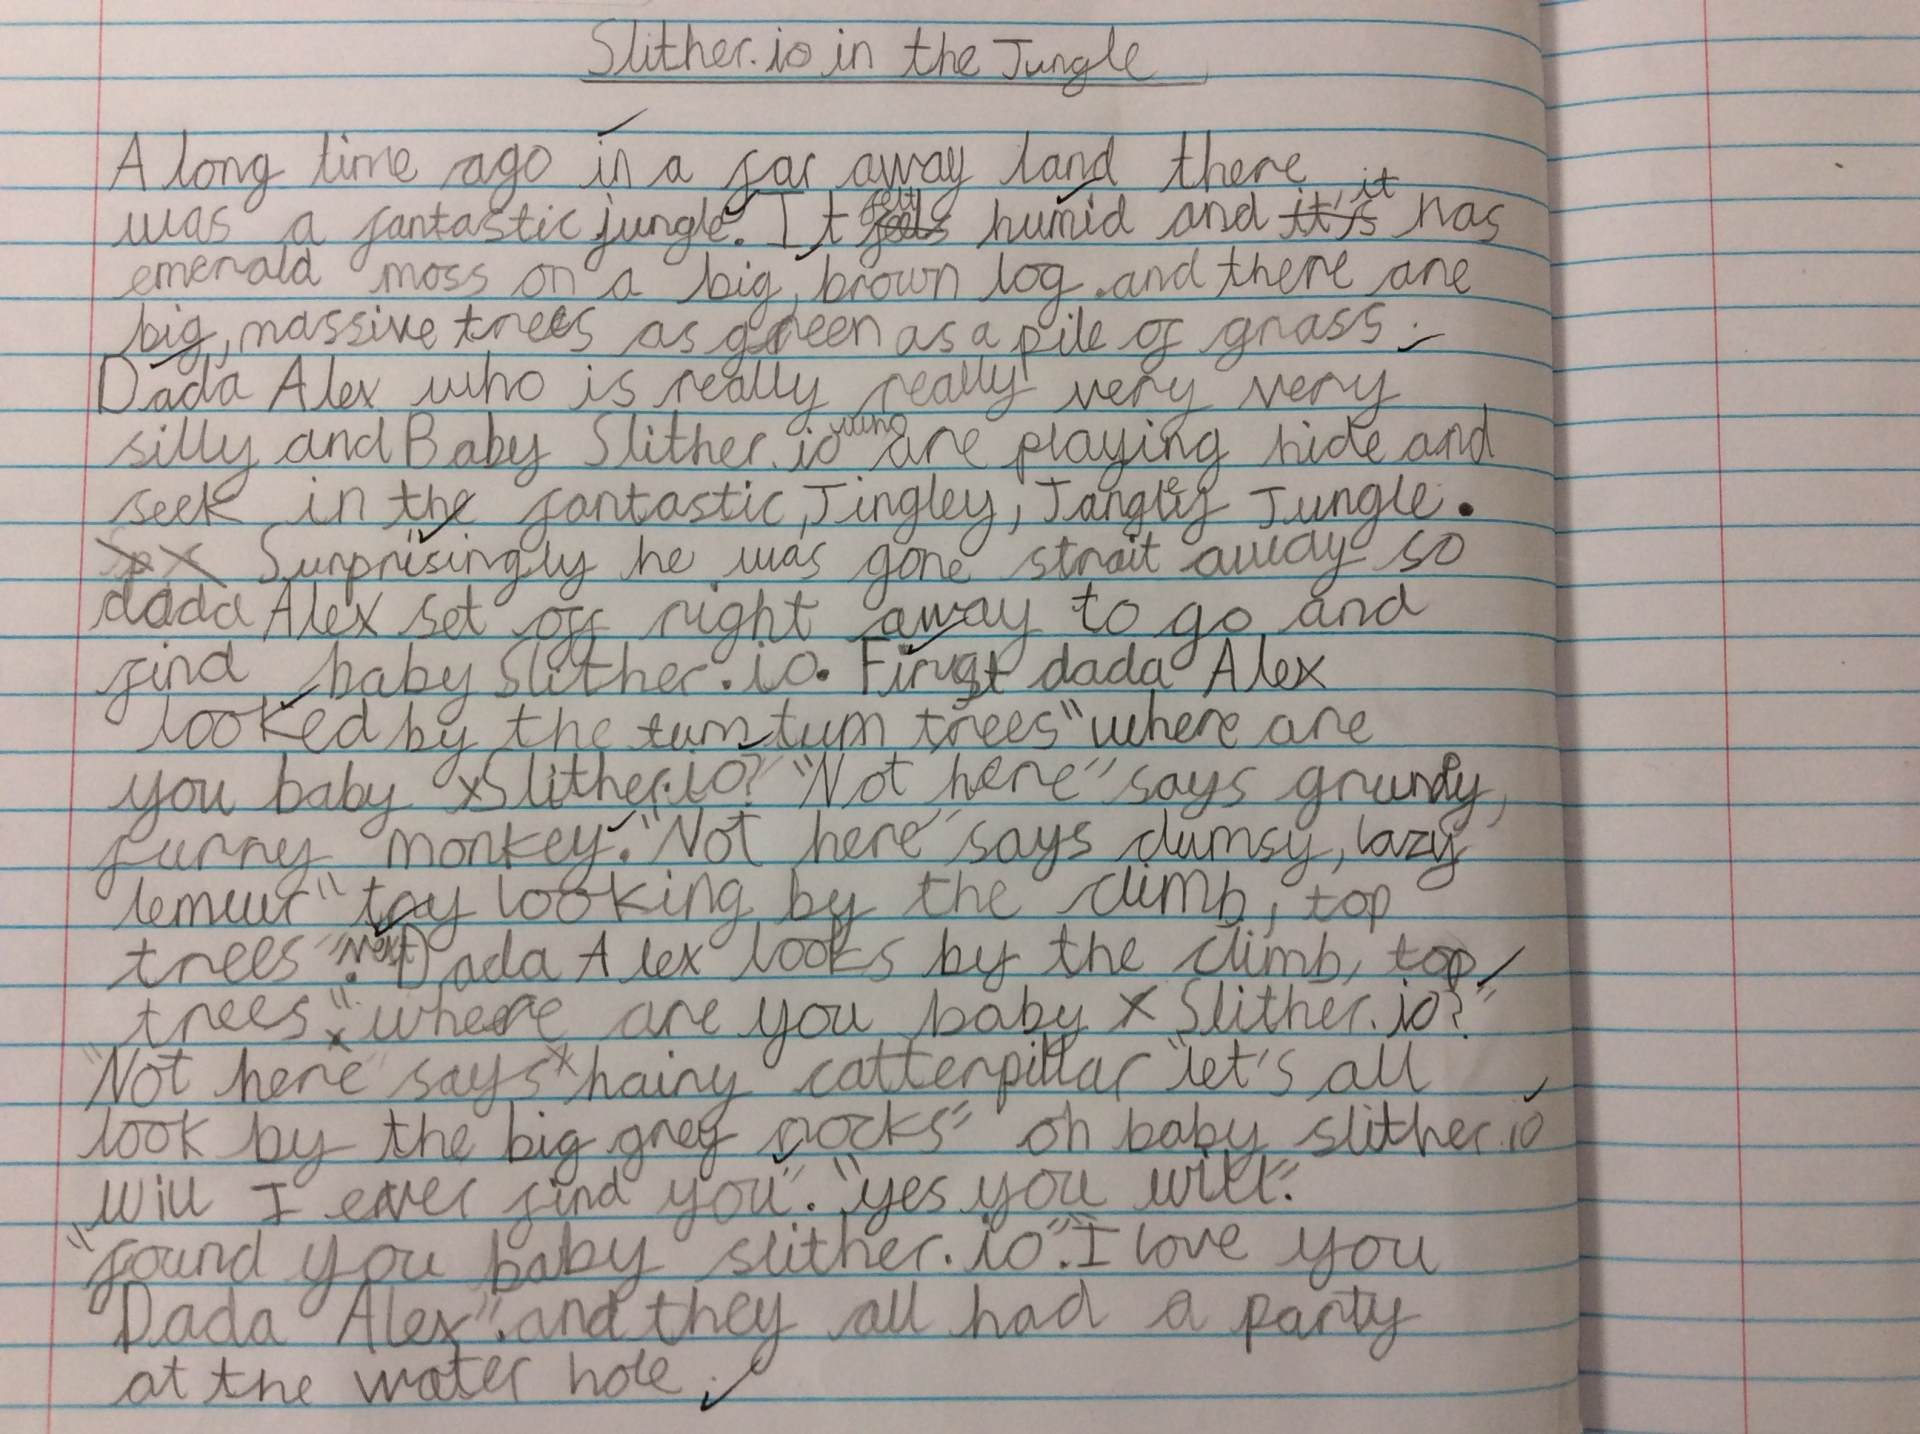 Slither.io in the Jungle
A long time ago in a far away land there
was a fantastic jungle. It felt humid and it has
emerald moss on a big, brown log .and there are
big, massive trees as green as a pile of grass.
Dada Alex who is really really very very
silly and Baby Slither.io who are playing hide and
seek in the fantastic, Jingley, Jangley Jungle.
Surprisingly he was gone strait away so
dada Alex set off right away to go and
find baby Slither.io. First dada Alex
looked by the tum tum trees "where are
you baby Slither.io?" "Not here" says grumpy,
funny monkey. "Not here" says clumsy, lazy
lemuur "try looking by the climb, top
trees". Next Dada Alex looks by the climb, top
trees. "where are you baby Slither.io?"
"Not here" says hairy catterpillar "let's all
look by the big grey rocks" oh baby slither.io
will I ever find you". "yes you will".
"found you baby slither.io". "I love you
Dada Alex". and they all had a party
at the water hole.